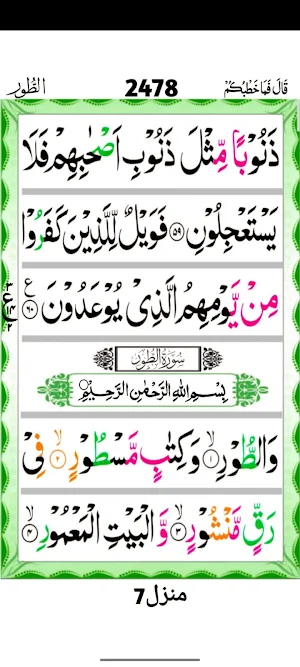 قَالَ فَمَا خَطْبُكُمْ 2478 الطُّوْر
ذَنُوْبًا مِّثْلَ ذَنُوْبِ اَصْحٰبِهِمْ فَلَا
يَسْتَعْجِلُوْنِ ﴿۵۹﴾ فَوَيْلٌ لِّلَّذِيْنَ كَفَرُوْا
مِنْ يَّوْمِهِمُ الَّذِيْ يُوْعَدُوْنَ ﴿۶۰﴾
سُوْرَةُ الطُّوْرِ
بِسْمِ اللهِ الرَّحْمٰنِ الرَّحِيْمِ
وَالطُّوْرِ ﴿۱﴾ وَكِتٰبٍ مَّسْطُوْرٍ ﴿۲﴾ فِيْ
رَقٍّ مَّنْشُوْرٍ ﴿۳﴾ وَّالْبَيْتِ الْمَعْمُوْرِ ﴿۴﴾
منزل7